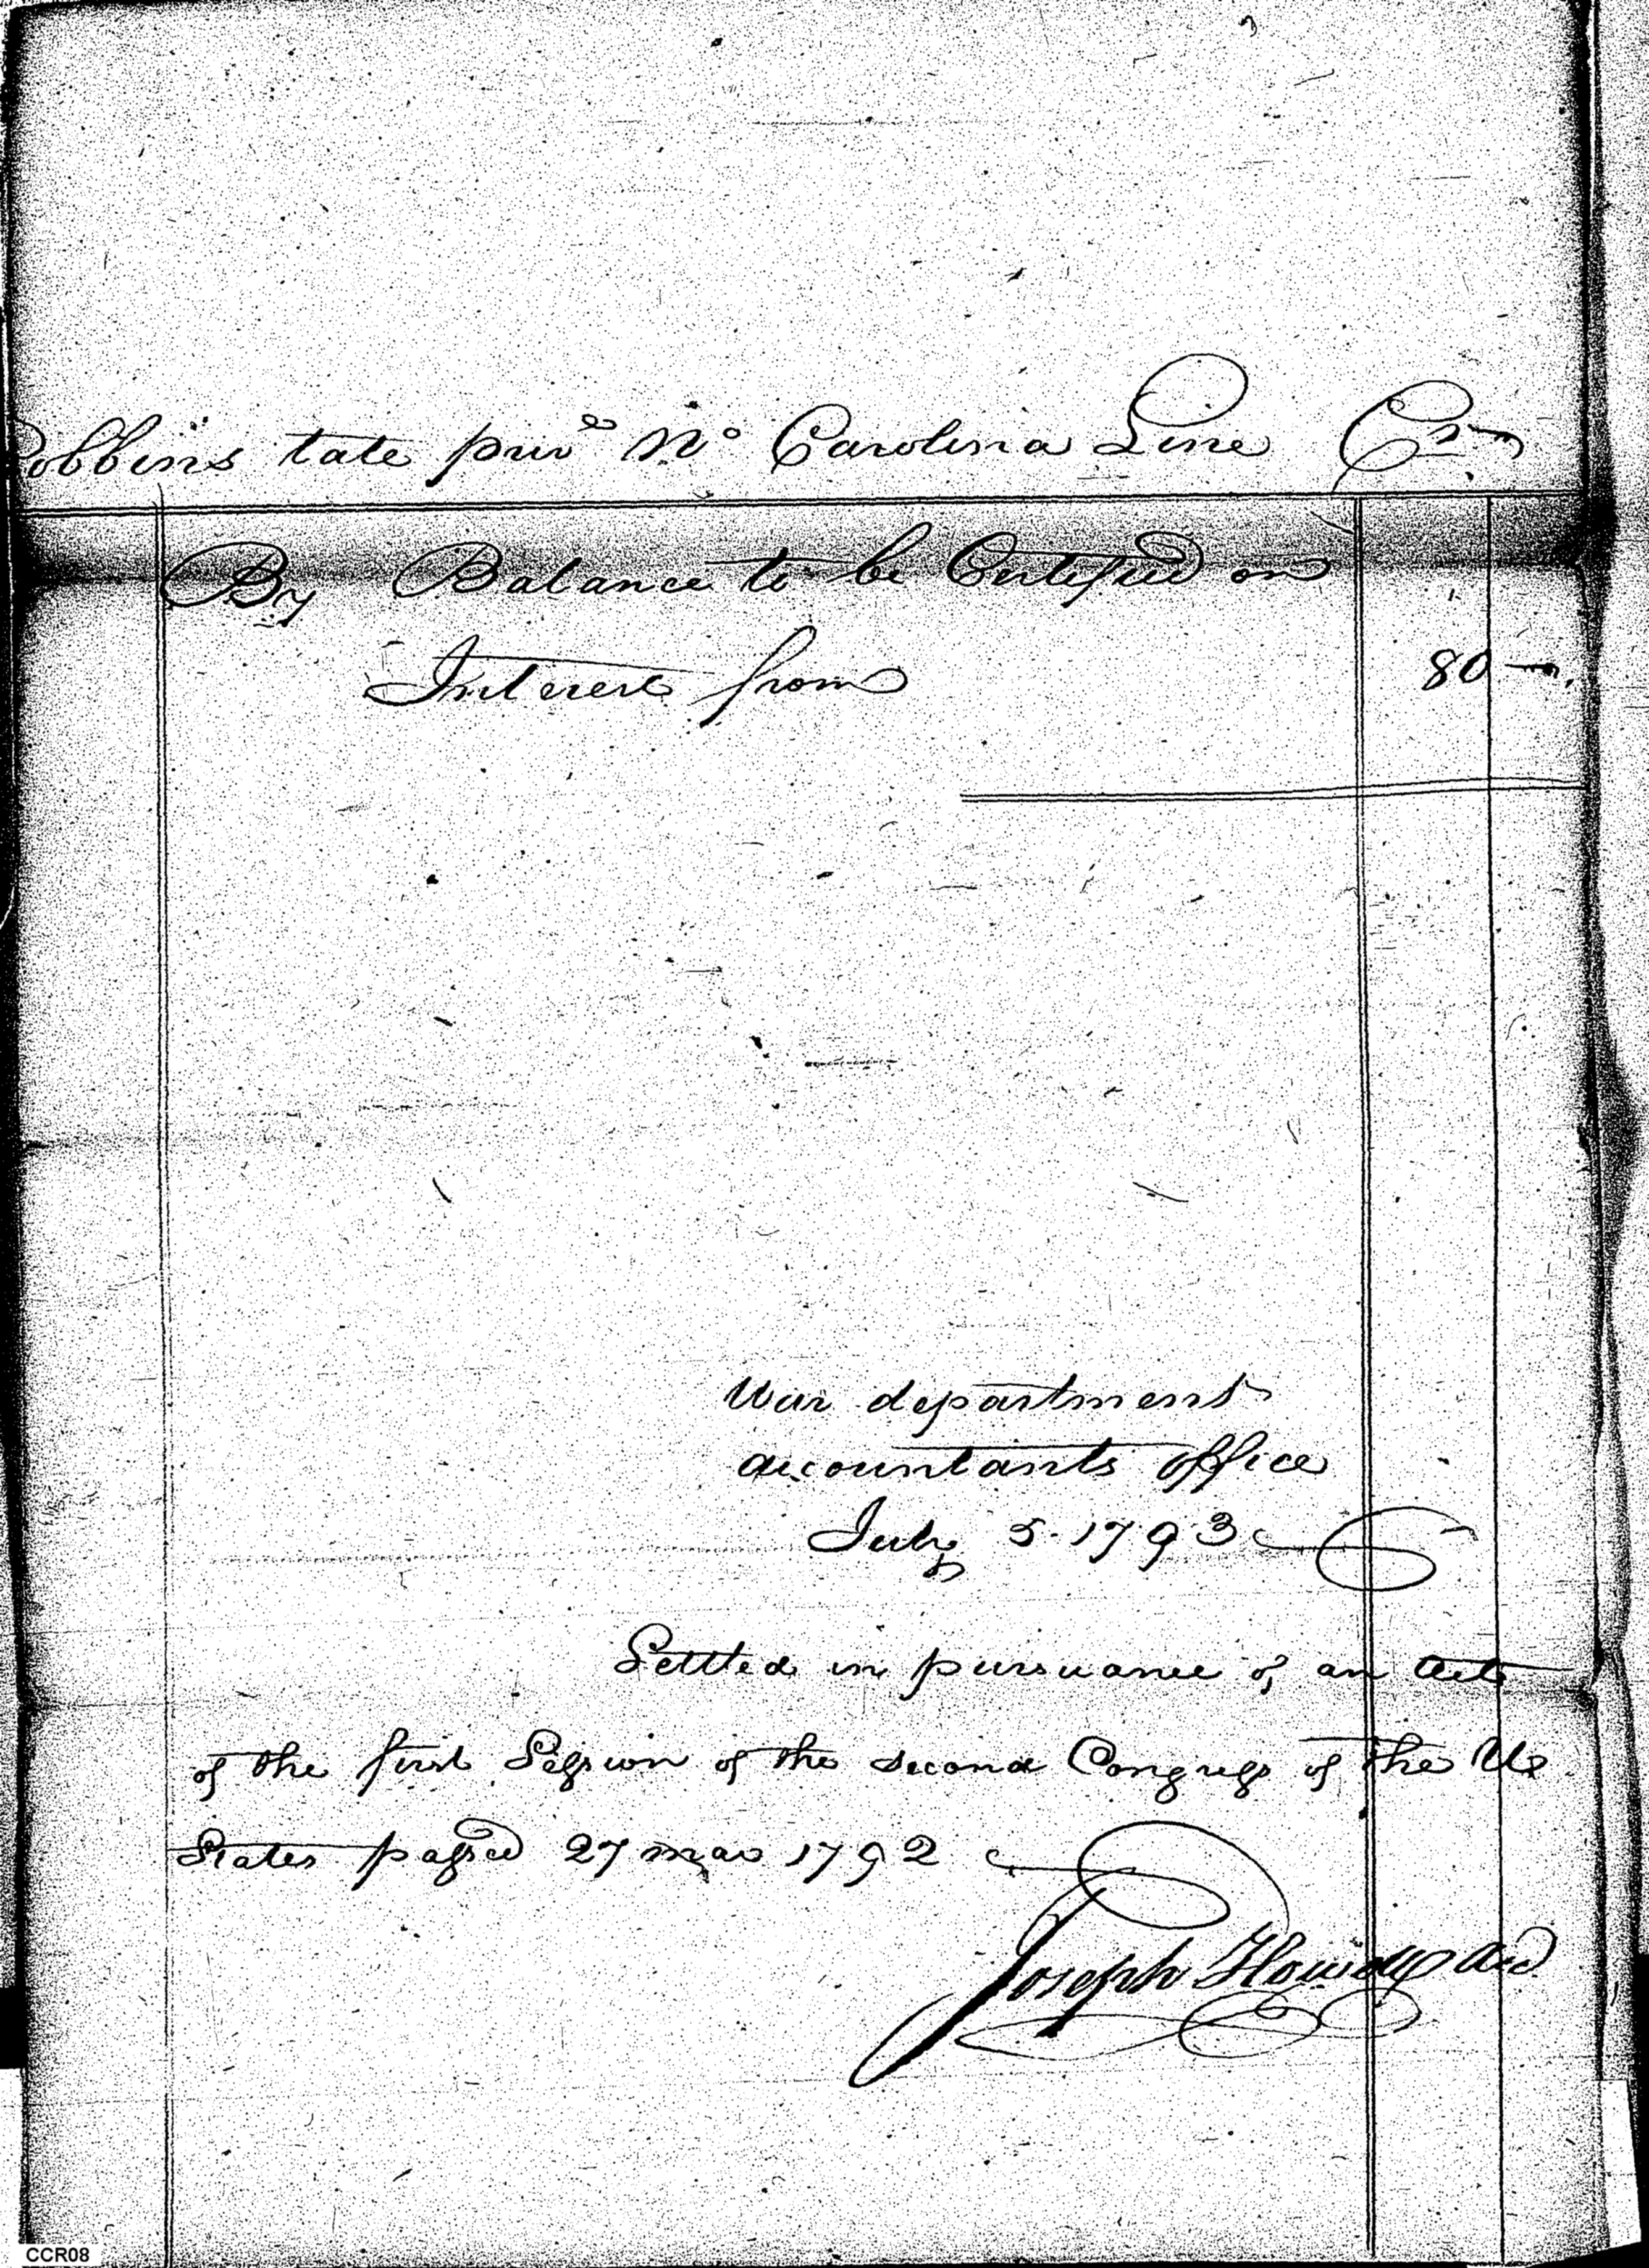 Robbins tate priv^te N^o Carolina Line Cr
By Balance to be Certified on
Interest from 80 —
War department
accountants office
July 5. 1793
Settled in pursuance of an act
of the first Session of the second Congress of the U^d
States passed 27 mar 1792
Joseph Howell Acc^t
CCR08